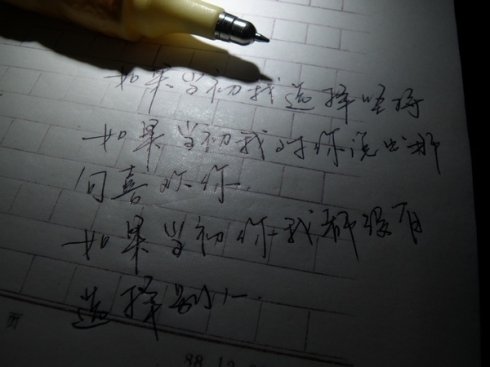 如果当初我选择坚持
如果当初我对你说出那
句喜欢你
如果当初你我都没有
选择别人
页
88.12